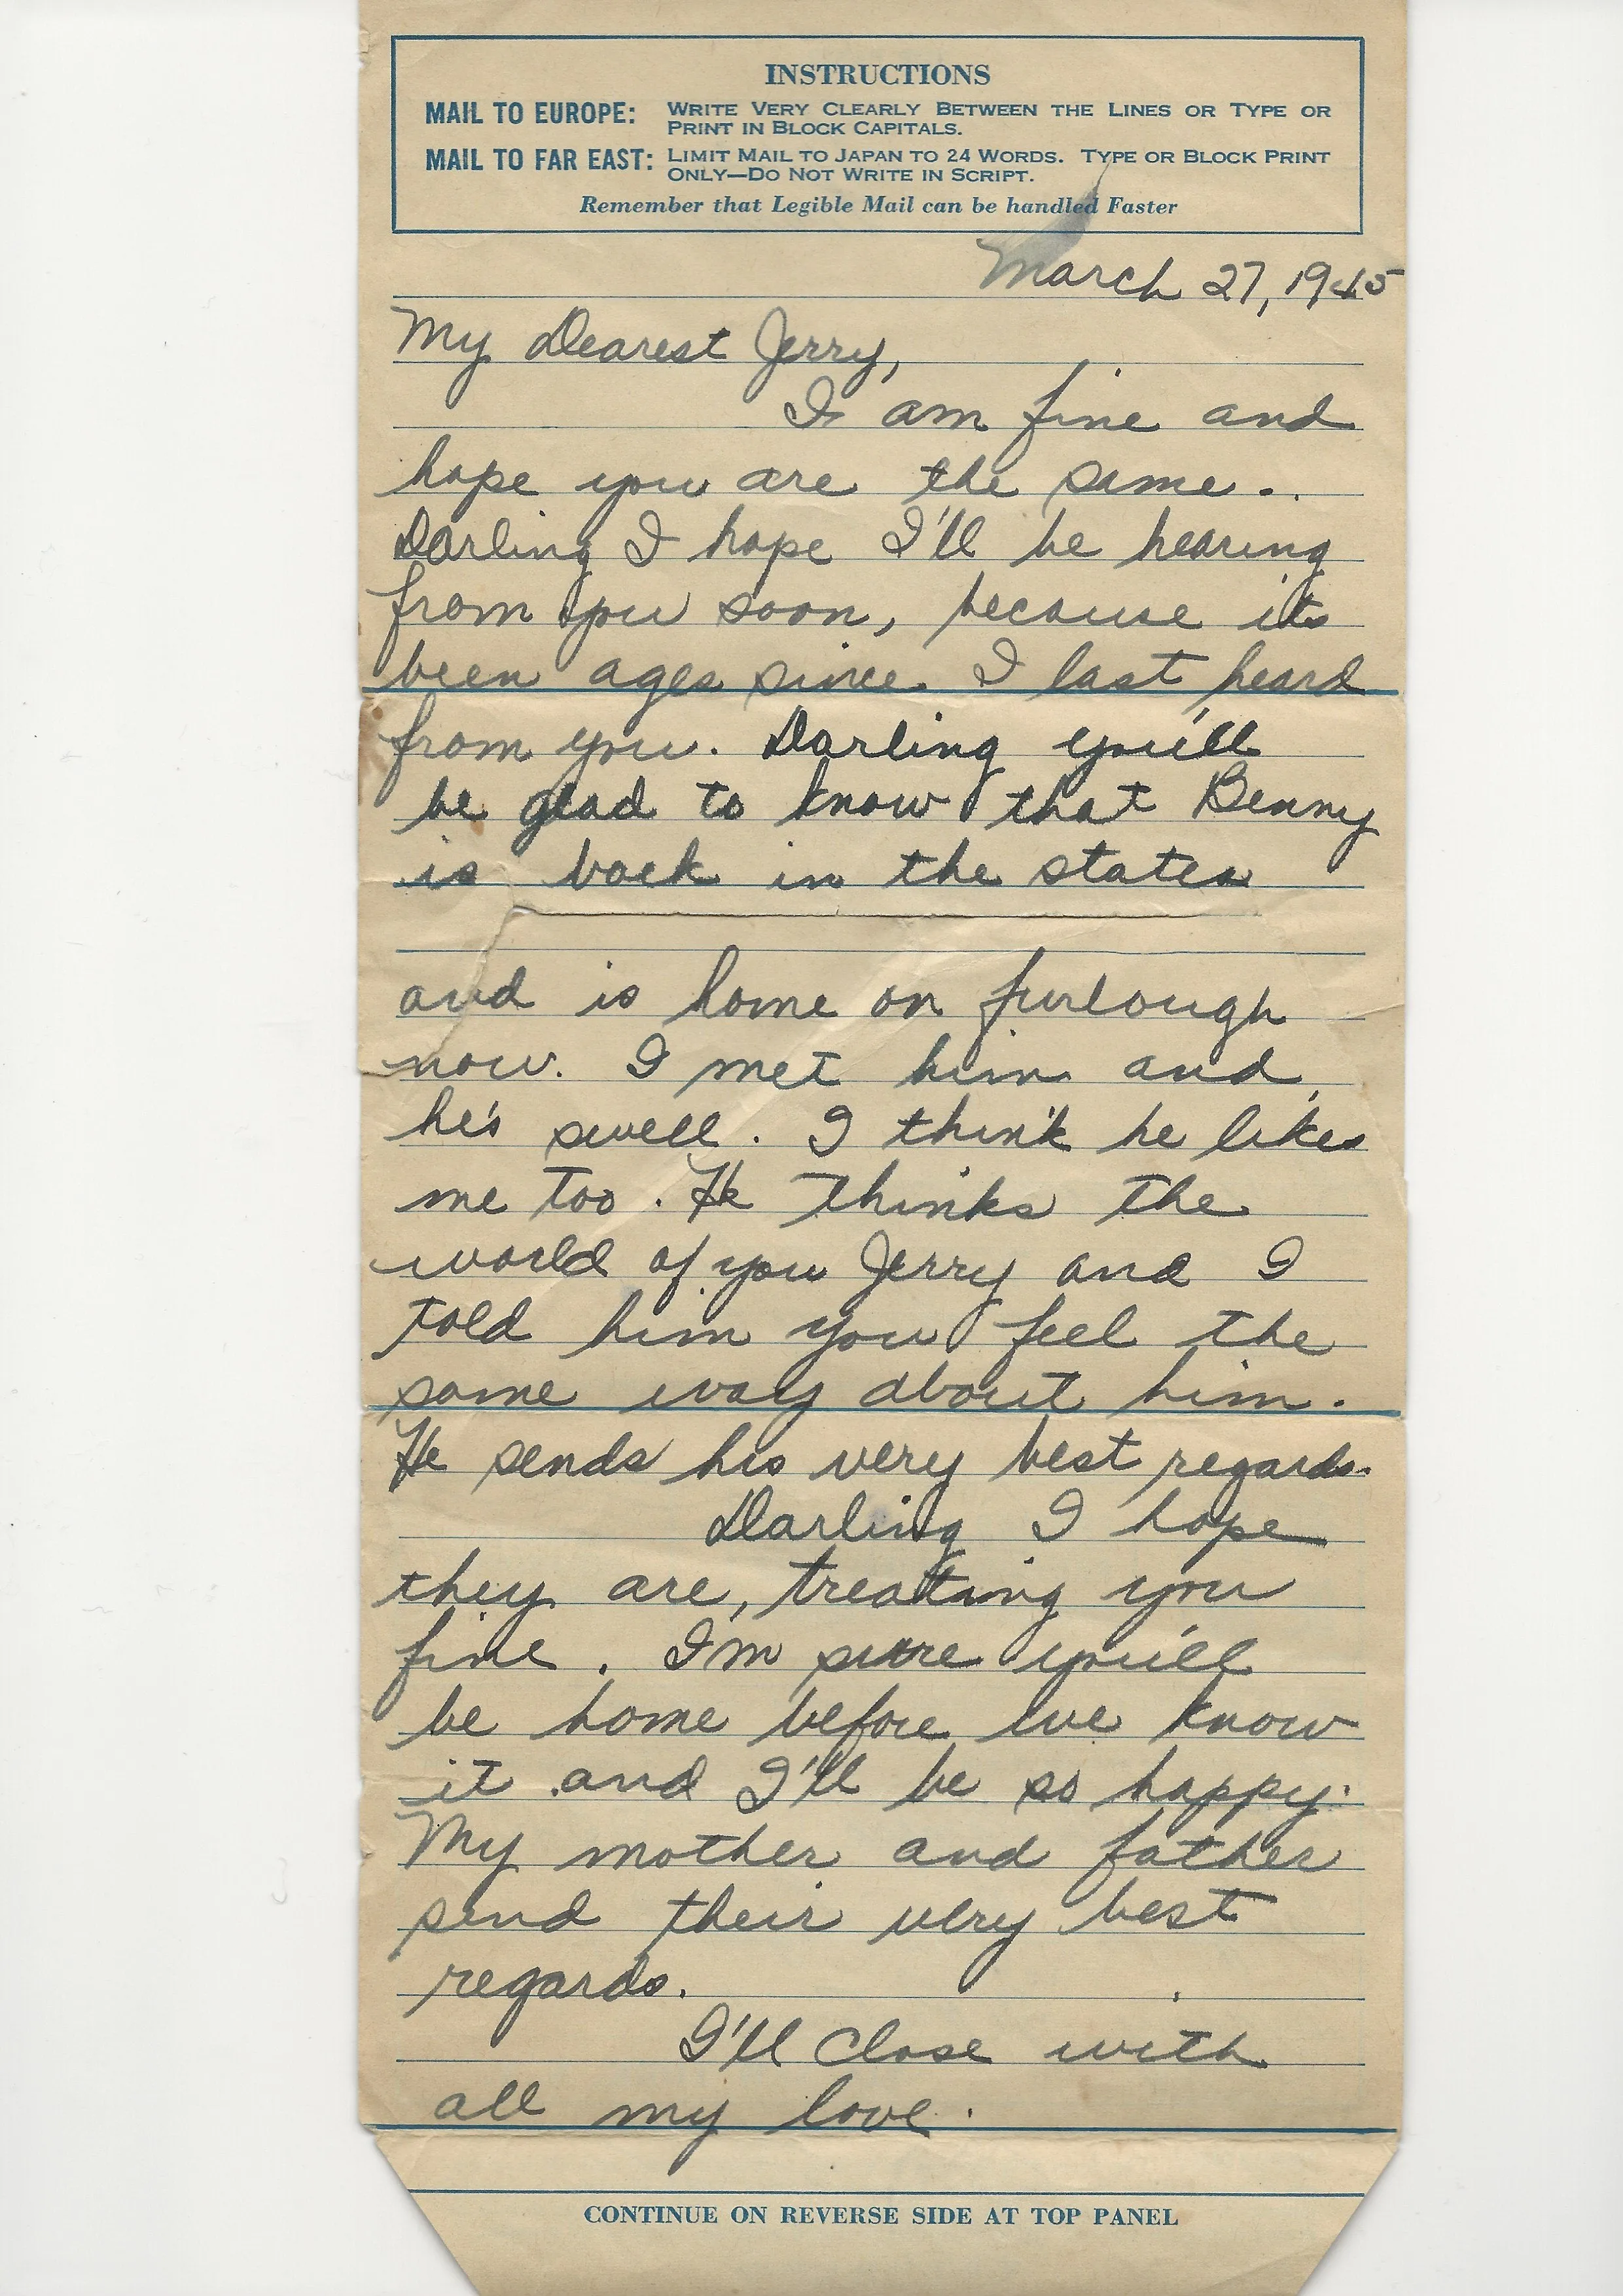 INSTRUCTIONS
MAIL TO EUROPE: WRITE VERY CLEARLY BETWEEN THE LINES OR TYPE OR
PRINT IN BLOCK CAPITALS.
MAIL TO FAR EAST: LIMIT MAIL TO JAPAN TO 24 WORDS. TYPE OR BLOCK PRINT
ONLY—DO NOT WRITE IN SCRIPT.
Remember that Legible Mail can be handled Faster
March 27, 1945
My Dearest Jerry,
I am fine and
hope you are the same..
Darling I hope I'll be hearing
from you soon, because its
been ages since I last heard
from you. Darling you'll
be glad to know that Benny
is back in the states
and is home on furlough
now. I met him and
he's swell. I think he likes
me too. He thinks the
world of you Jerry and I
told him you feel the
same way about him.
He sends his very best regards.
Darling I hope
they are, treating you
fine. I'm sure you'll
be home before we know
it and I'll be so happy.
My mother and father
send their very best
regards.
I'll close with
all my love.
CONTINUE ON REVERSE SIDE AT TOP PANEL